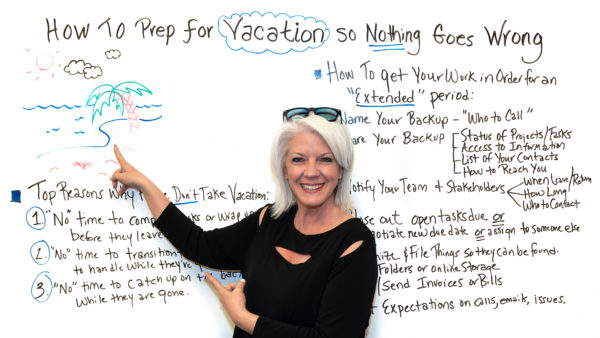 How To Prep for Vacation so Nothing Goes Wrong
How To get Your Work in Order for an
"Extended" period:
Name Your Backup - "Who to Call"
Your Backup
Status of Projects/Tasks
Access to Information
List of Your Contacts
How to Reach You
Notify Your Team & Stakeholders
When Leave/Return
How Long
Who to Contact
out open tasks due or
new due date or assign to someone else
& File Things so they can be found.
Folders or online Storage
/Send Invoices or Bills
Expectations on calls, emails, issues.
Top Reasons Why Don't Take Vacation:
1. "No" time to or wrap up
before they leave
2. "No" time to transition
to handle while they're
3. "No" time to catch up on the back
while they are gone.